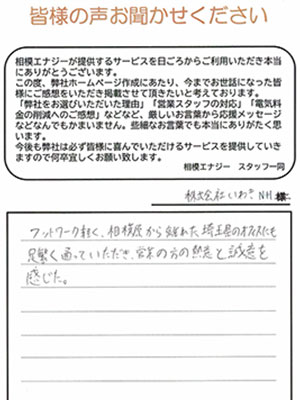 皆様の声お聞かせください
相模エナジーが提供するサービスを日ごろからご利用いただき本当
にありがとうございます。
この度、弊社ホームページ作成にあたり、今までお世話になった皆
様にご感想をいただき掲載させて頂きたいと考えております。
「弊社をお選びいただいた理由」「営業スタッフの対応」「電気料
金の削減へのご感想」などなど、厳しいお言葉から応援メッセージ
などなんでもかまいません。些細なお言葉でも本当にありがたく思
います。
今後も弊社は必ず皆様に喜んでいただけるサービスを提供していき
ますので何卒宜しくお願い致します。
相模エナジー スタッフ一同
株式会社いわき NH 様
フットワーク軽く、相模原から離れた埼玉県のオフィスにも
足繁く通っていただき、営業の方の熱意と誠意を
感じた。